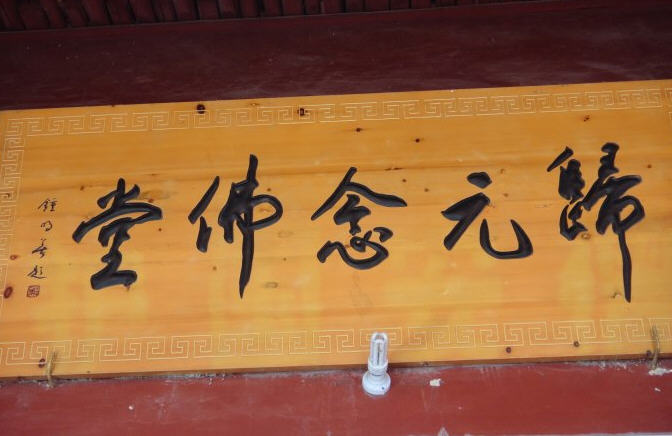 歸元念佛堂
鍾明善題